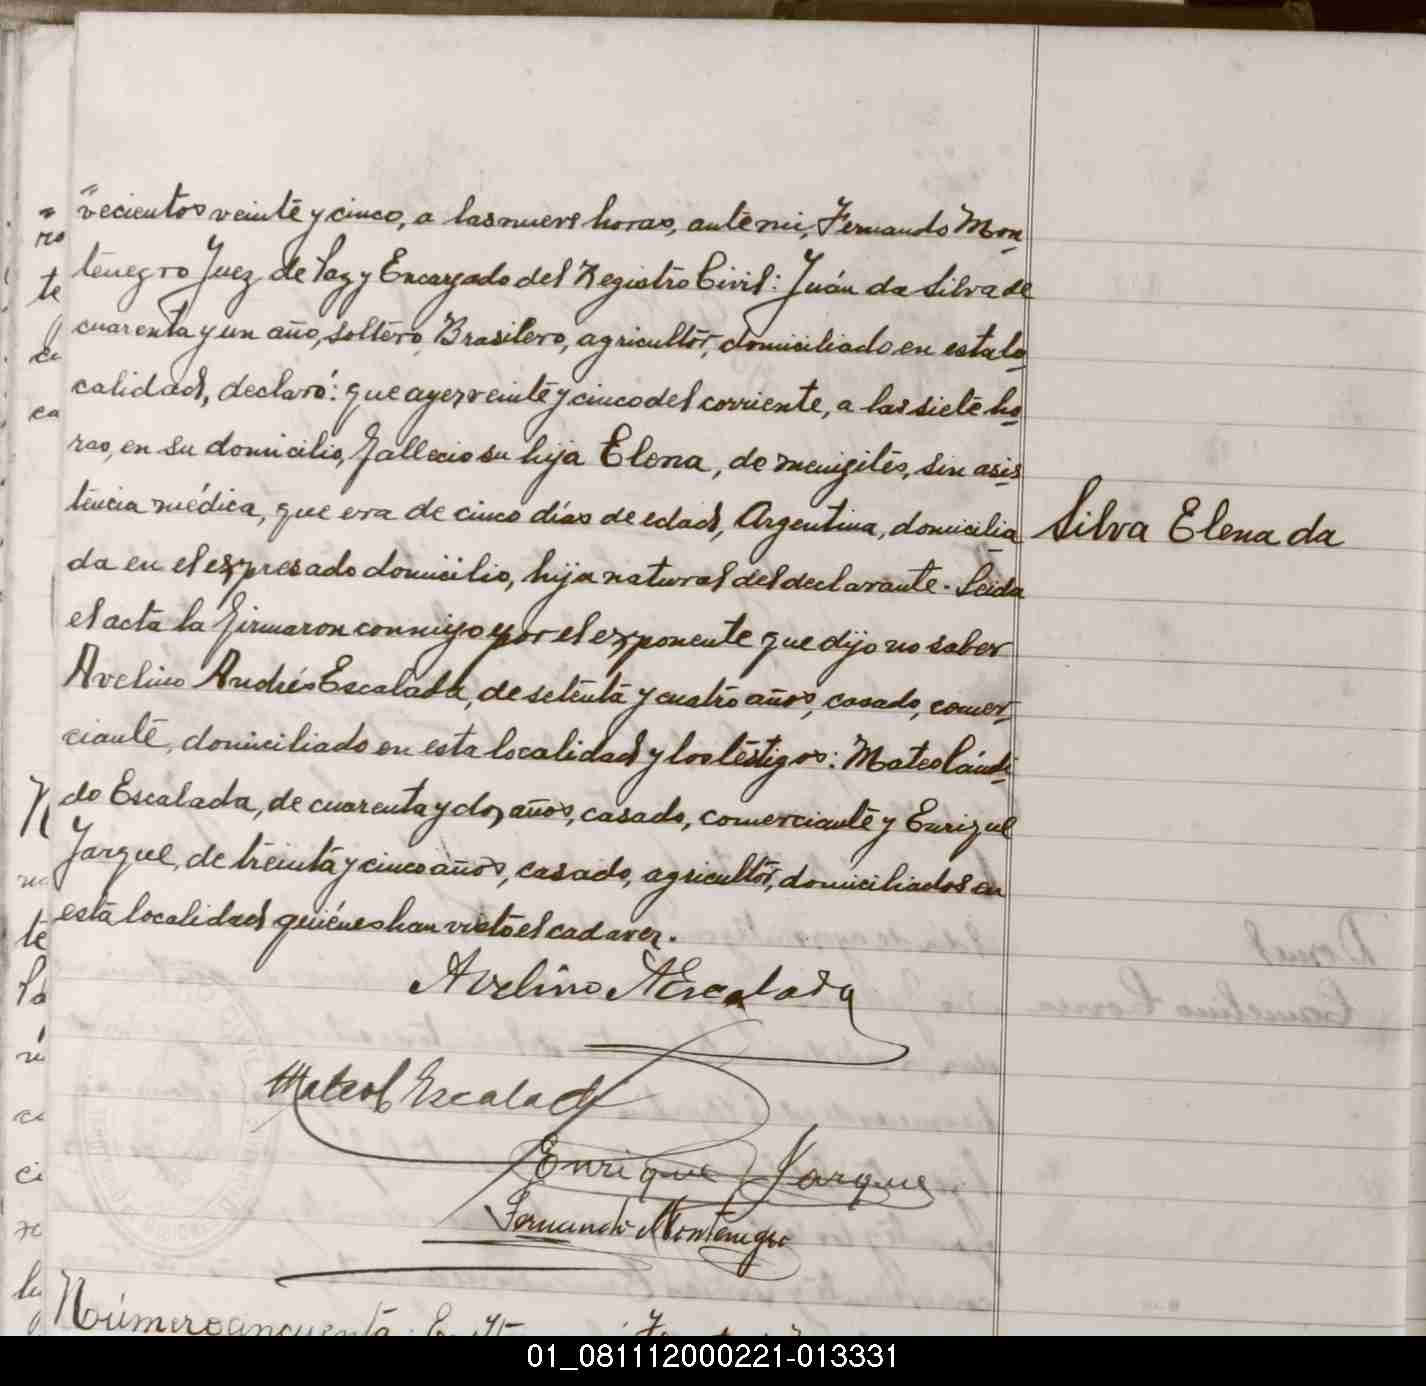 vecientos veinte y cinco, a las nueve horas, ante mi, Fernando Mon-
tenegro Juez de Paz y Encargado del Registro Civil: Juán da Silva de
cuarenta y un año, soltero, Brasilero, agricultor, domiciliado en esta lo-
calidad, declaró: que ayer veinte y cinco del corriente, a las siete ho-
ras, en su domicilio, fallecio su hija Elena, de menigites, sin asis-
tencia médica, que era de cinco días de edad, Argentina, domicilia-
Silva Elena da
da en el expresado domicilio, hija natural del declarante. Leida
el acta la firmaron conmigo y por el exponente que dijo no saber
Avelino Andrés Escalada, de setenta y cuatro años, casado, comer-
ciante, domiciliado en esta localidad y los testigos: Mateo Cándi-
do Escalada, de cuarenta y dos años, casado, comerciante y Enrique
Jarque, de treinta y cinco años, casado, agricultor, domiciliados en
esta localidad quiénes han visto el cadaver.
Avelino A Escalada
Mateo C Escalada
Enrique Jarque
Fernando Montenegro
Número cincuenta. En
01_081112000221-013331